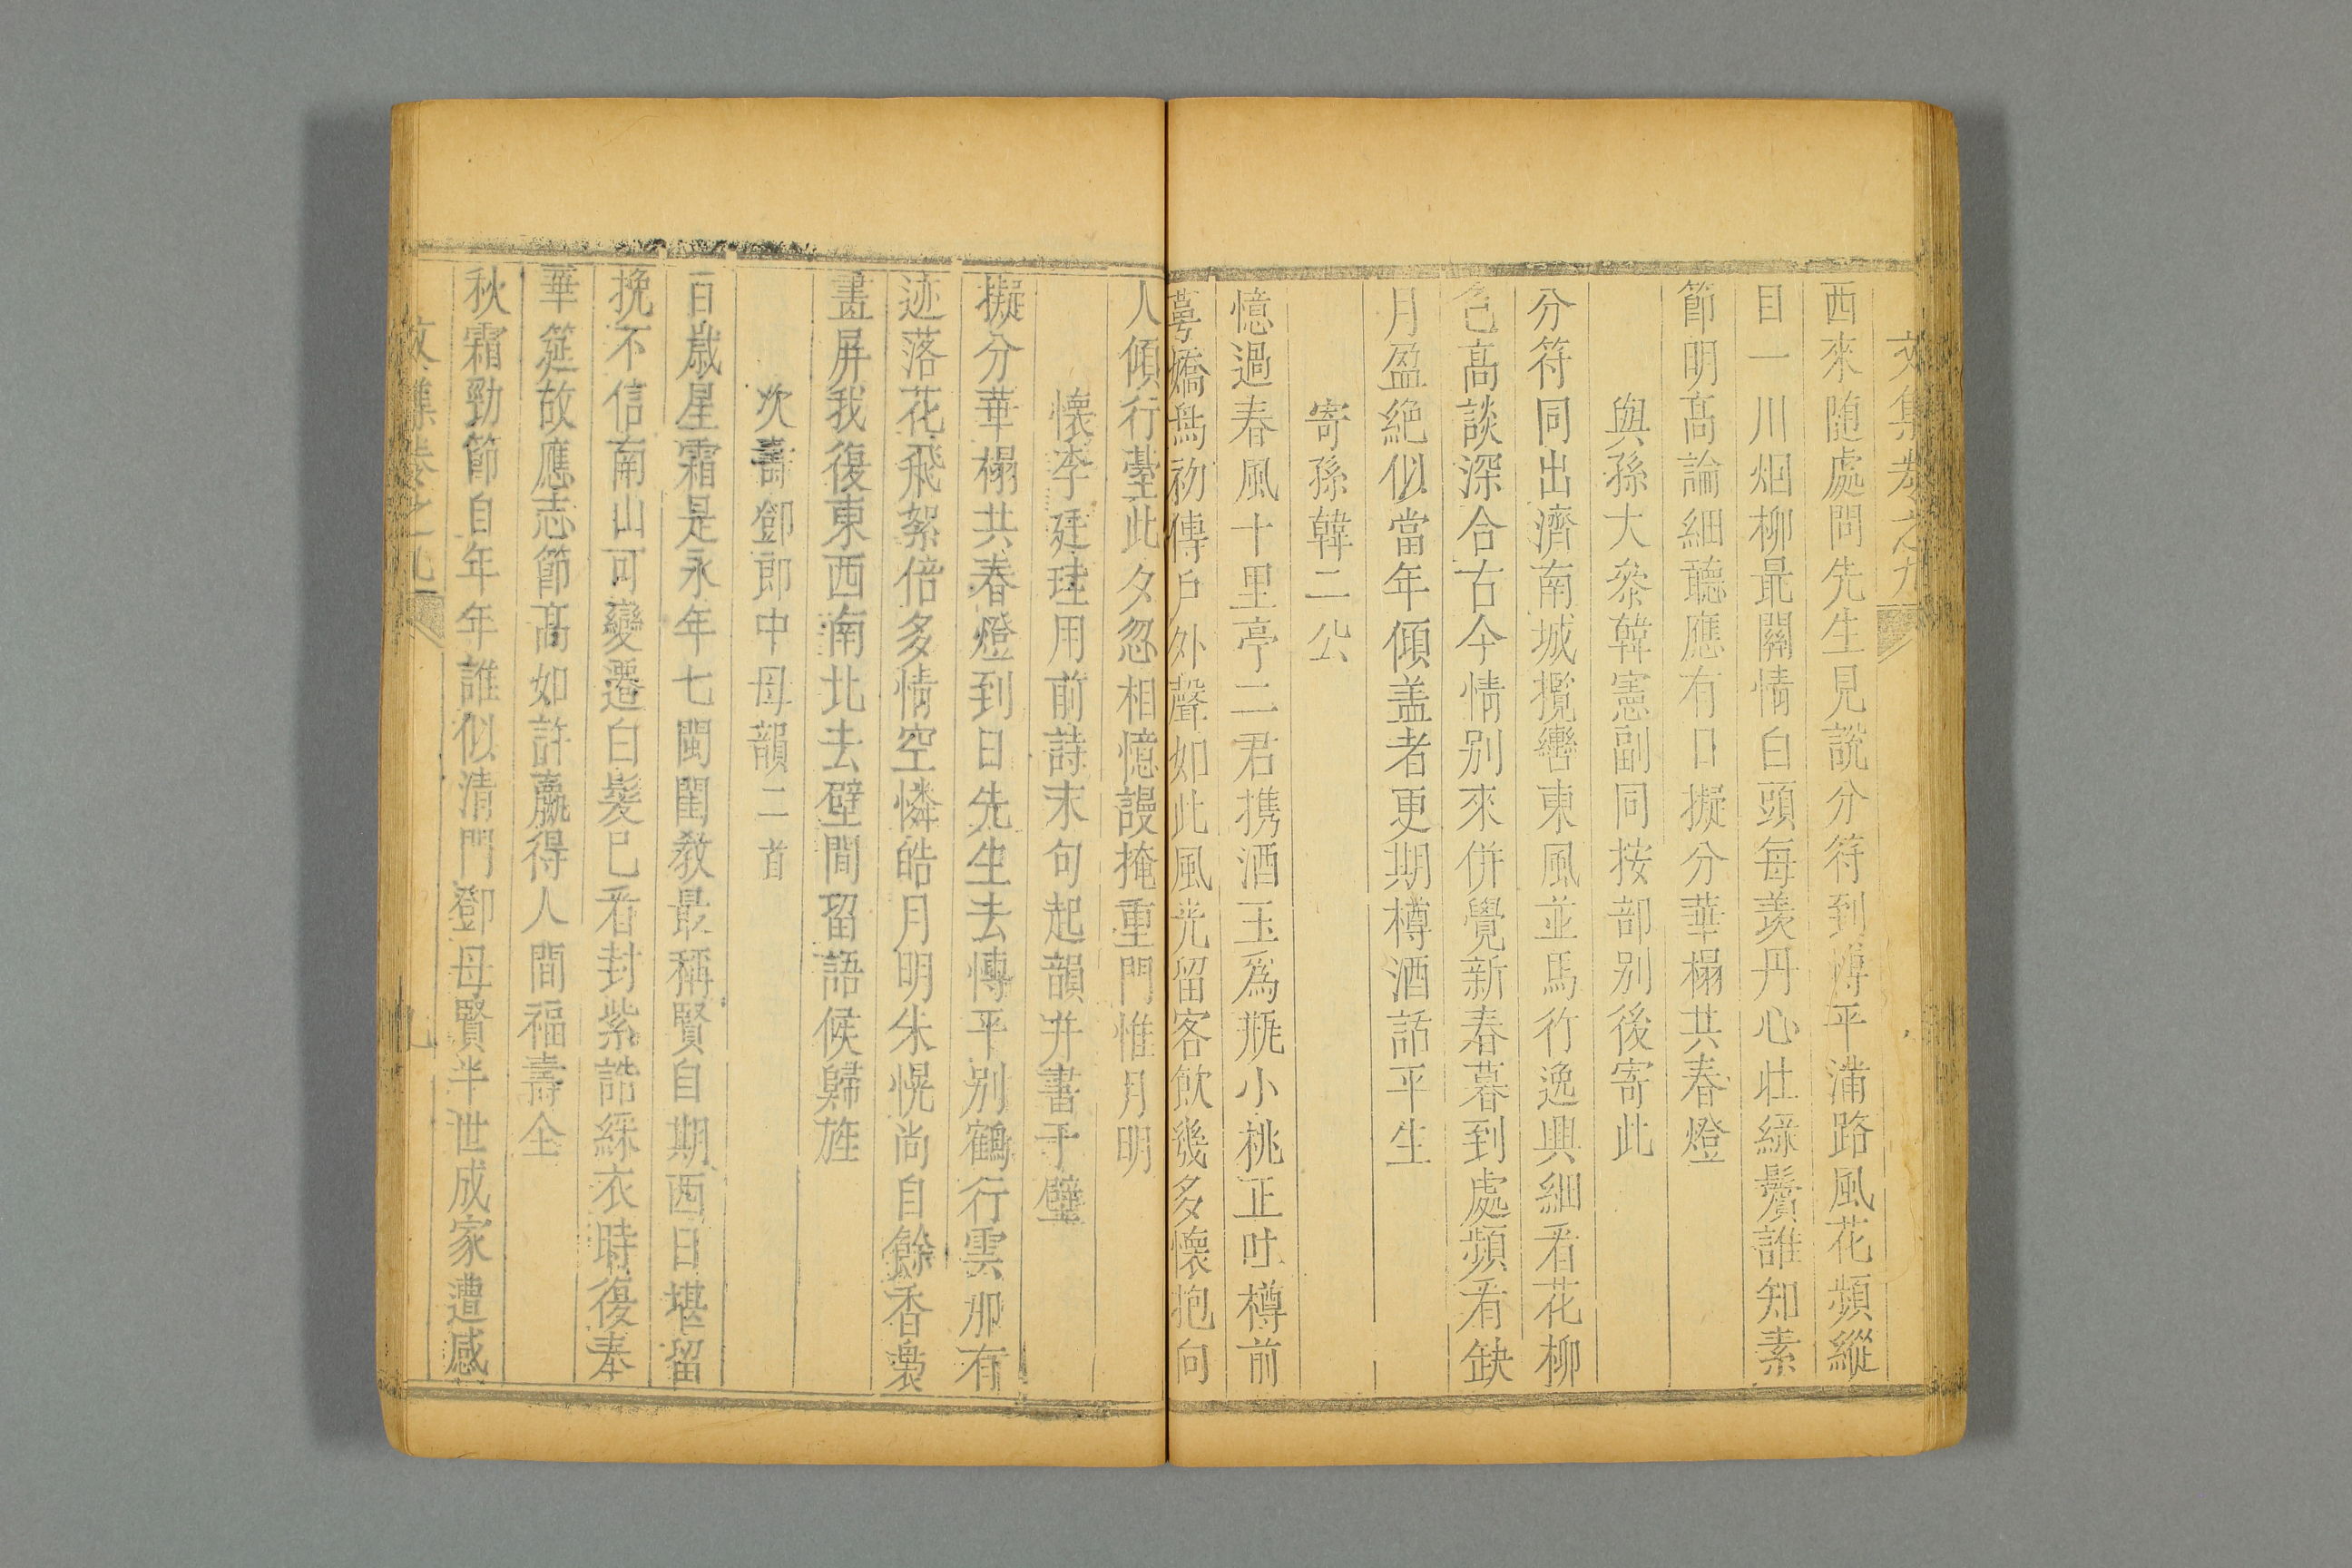 文集卷之九
西來随處問先生見説分符到博平滿路風花頻縱
目一川烟柳最關情白頭每羨丹心壯緑鬢誰知素
節明髙論細聽應有日擬分華榻共春燈
與孫大叅韓憲副同按部别後寄此
分符同出濟南城攬轡東風並馬行逸興細看花柳
色髙談深合古今情别來併覺新春暮到處頻看缺
月盈絶似當年傾盖者更期樽酒話平生
寄孫韓二公
憶過春風十里亭二君携酒玉爲瓶小桃正吐樽前
蕚嬌鳥初傳戶外聲如此風光留客飲幾多懷抱向
人傾行臺此夕忽相憶謾掩重門惟月明
懷李廷珪用前詩末句起韻并書于壁
擬分華榻共春燈到日先生去博平别鶴行雲那有
迹落花飛絮倍多情空憐皓月明朱幌尚自餘香裊
畫屏我復東西南北去壁間留語候歸旌
次壽鄧郎中母韻二首
百歳星霜是永年七閩閨教最稱賢自期西日堪留
挽不信南山可變遷白髮已看封紫誥綵衣時復奉
華筵故應志節髙如許嬴得人間福壽全
秋霜勁節自年年誰似清門鄧母賢半世成家遭感
文集卷之九
九